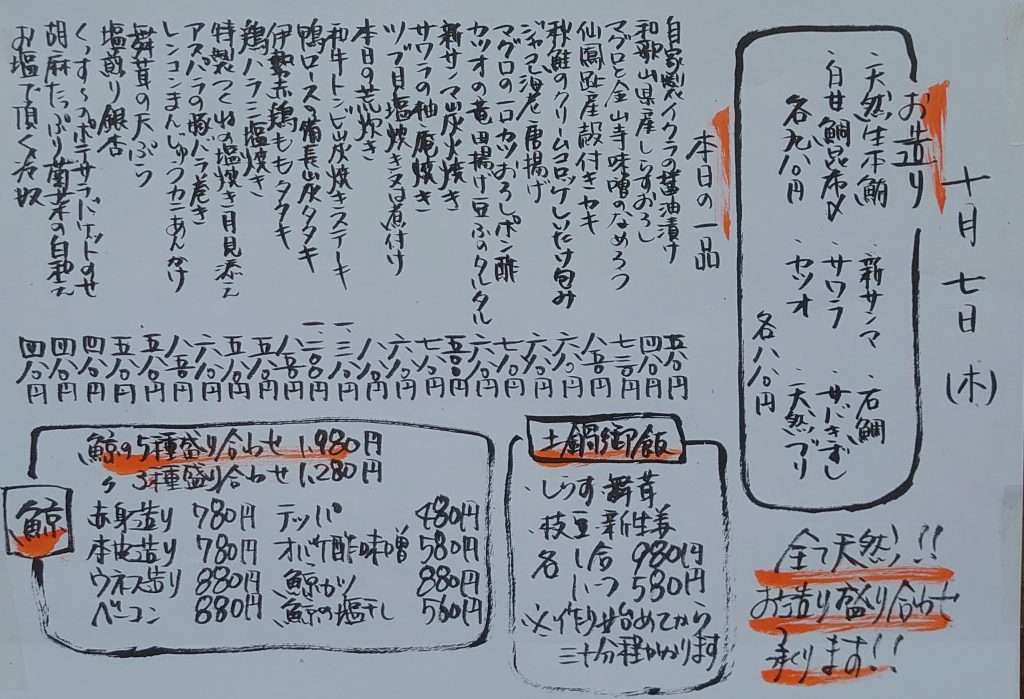 十月七日(木)
お造り
・天然生本鮪 ・新サンマ ・石鯛
・白甘鯛昆布〆 ・サワラ ・サバきずし
・カツオ ・天然ブリ
各九八〇円
各八八〇円
全て天然!!
お造り盛り合わせ
承ります!!
本日の一品
自家製イクラの醤油漬け 五八〇円
和歌山県産しらすおろし 四八〇円
マグロと金山寺味噌のなめろう 七三〇円
仙鳳趾産殻付きカキ 八五〇円
秋鮭のクリームコロッケしいたけ包み 六八〇円
ジャコ海老唐揚げ 六八〇円
マグロの一口カツおろしポン酢 七八〇円
カツオの竜田揚げ豆ふのタルタル 六八〇円
新サンマ炭火焼き 五八〇円
サワラの柚庵焼き 七八〇円
ツブ貝塩焼き又は煮付け 六八〇円
本日の荒炊き 八八〇円
和牛トンビ炭焼きステーキ
鴨ロースの備長炭タタキ
伊勢赤鶏ももタタキ 八八〇円
鶏ハラミ塩焼き 五八〇円
特製つくねの塩焼き月見添え 五八〇円
アスパラの豚バラ巻き 六八〇円
レンコンまんじゅうカニあんかけ 八五〇円
舞茸の天ぷら 五八〇円
塩煎り銀杏 五八〇円
ポテサラバケットのせ 四八〇円
胡麻たっぷり菊菜の白和え 四八〇円
お塩で頂く冷奴 四八〇円
土鍋御飯
・しらす・舞茸
・枝豆・新生姜
各 1合 980円
1/2 580円
※作り始めてから
三十分程かかります
鯨
鯨の5種盛り合わせ 1,980円
〃 3種盛り合わせ 1,280円
赤身造り 780円 テッパ 480円
本皮造り 780円 オバケ酢味噌 580円
ウネス造り 880円 鯨カツ 880円
ベーコン 880円 鯨の塩干し 560円